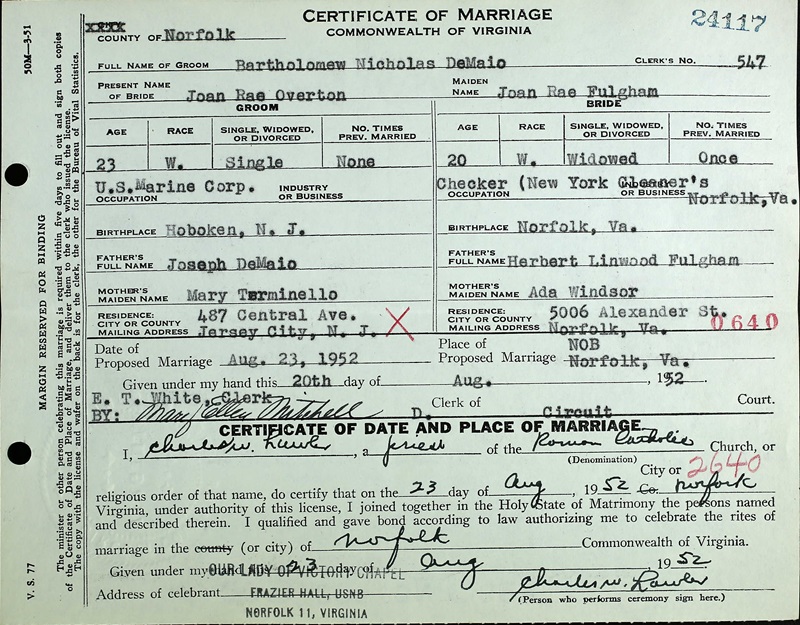 CERTIFICATE OF MARRIAGE
COMMONWEALTH OF VIRGINIA
24117
COUNTY OF Norfolk
FULL NAME OF GROOM Bartholomew Nicholas DeMaio CLERK'S NO. 547
PRESENT NAME OF BRIDE Joan Rae Overton MAIDEN NAME Joan Rae Fulgham
GROOM BRIDE
AGE RACE SINGLE, WIDOWED, OR DIVORCED NO. TIMES PREV. MARRIED AGE RACE SINGLE, WIDOWED, OR DIVORCED NO. TIMES PREV. MARRIED
23 W. Single None 20 W. Widowed Once
U.S.Marine Corp. Checker (New York Gleaner's
OCCUPATION INDUSTRY OR BUSINESS OCCUPATION INDUSTRY OR BUSINESS Norfolk,Va.
BIRTHPLACE Hoboken, N. J. BIRTHPLACE Norfolk, Va.
FATHER'S FULL NAME Joseph DeMaio FATHER'S FULL NAME Herbert Linwood Fulgham
MOTHER'S MAIDEN NAME Mary Terminello MOTHER'S MAIDEN NAME Ada Windsor
RESIDENCE: 487 Central Ave. RESIDENCE: 5006 Alexander St.
CITY OR COUNTY MAILING ADDRESS Jersey City, N. J. X CITY OR COUNTY MAILING ADDRESS Norfolk, Va. 0640
Date of Proposed Marriage Aug. 23, 1952 Place of Proposed Marriage NOB Norfolk, Va.
Given under my hand this 20th day of Aug. , 1952.
E. T. White, Clerk
BY: Mary Ellen Mitchell D. Clerk of Circuit Court.
CERTIFICATE OF DATE AND PLACE OF MARRIAGE
I, Charles W. Lawler, a priest of the Roman Catholic Church, or
(Denomination) City or 2640
religious order of that name, do certify that on the 23 day of Aug , 1952 Co. Norfolk
Virginia, under authority of this license, I joined together in the Holy State of Matrimony the persons named
and described therein. I qualified and gave bond according to law authorizing me to celebrate the rites of
marriage in the county (or city) of Norfolk Commonwealth of Virginia.
Given under my 23 day of Aug 1952
OUR LADY OF VICTORY CHAPEL
Address of celebrant FRAZIER HALL, USNB Charles W. Lawler
(Person who performs ceremony sign here.)
NORFOLK 11, VIRGINIA
50M—3-51
MARGIN RESERVED FOR BINDING
V. S. 77
The minister or other person celebrating this marriage is required within five days to fill out and sign both copies
of the Certificate of Date and Place of Marriage, and deliver them to the clerk who issued the license.
The copy with the license and wafer on the back is for the clerk, the other for the Bureau of Vital Statistics.